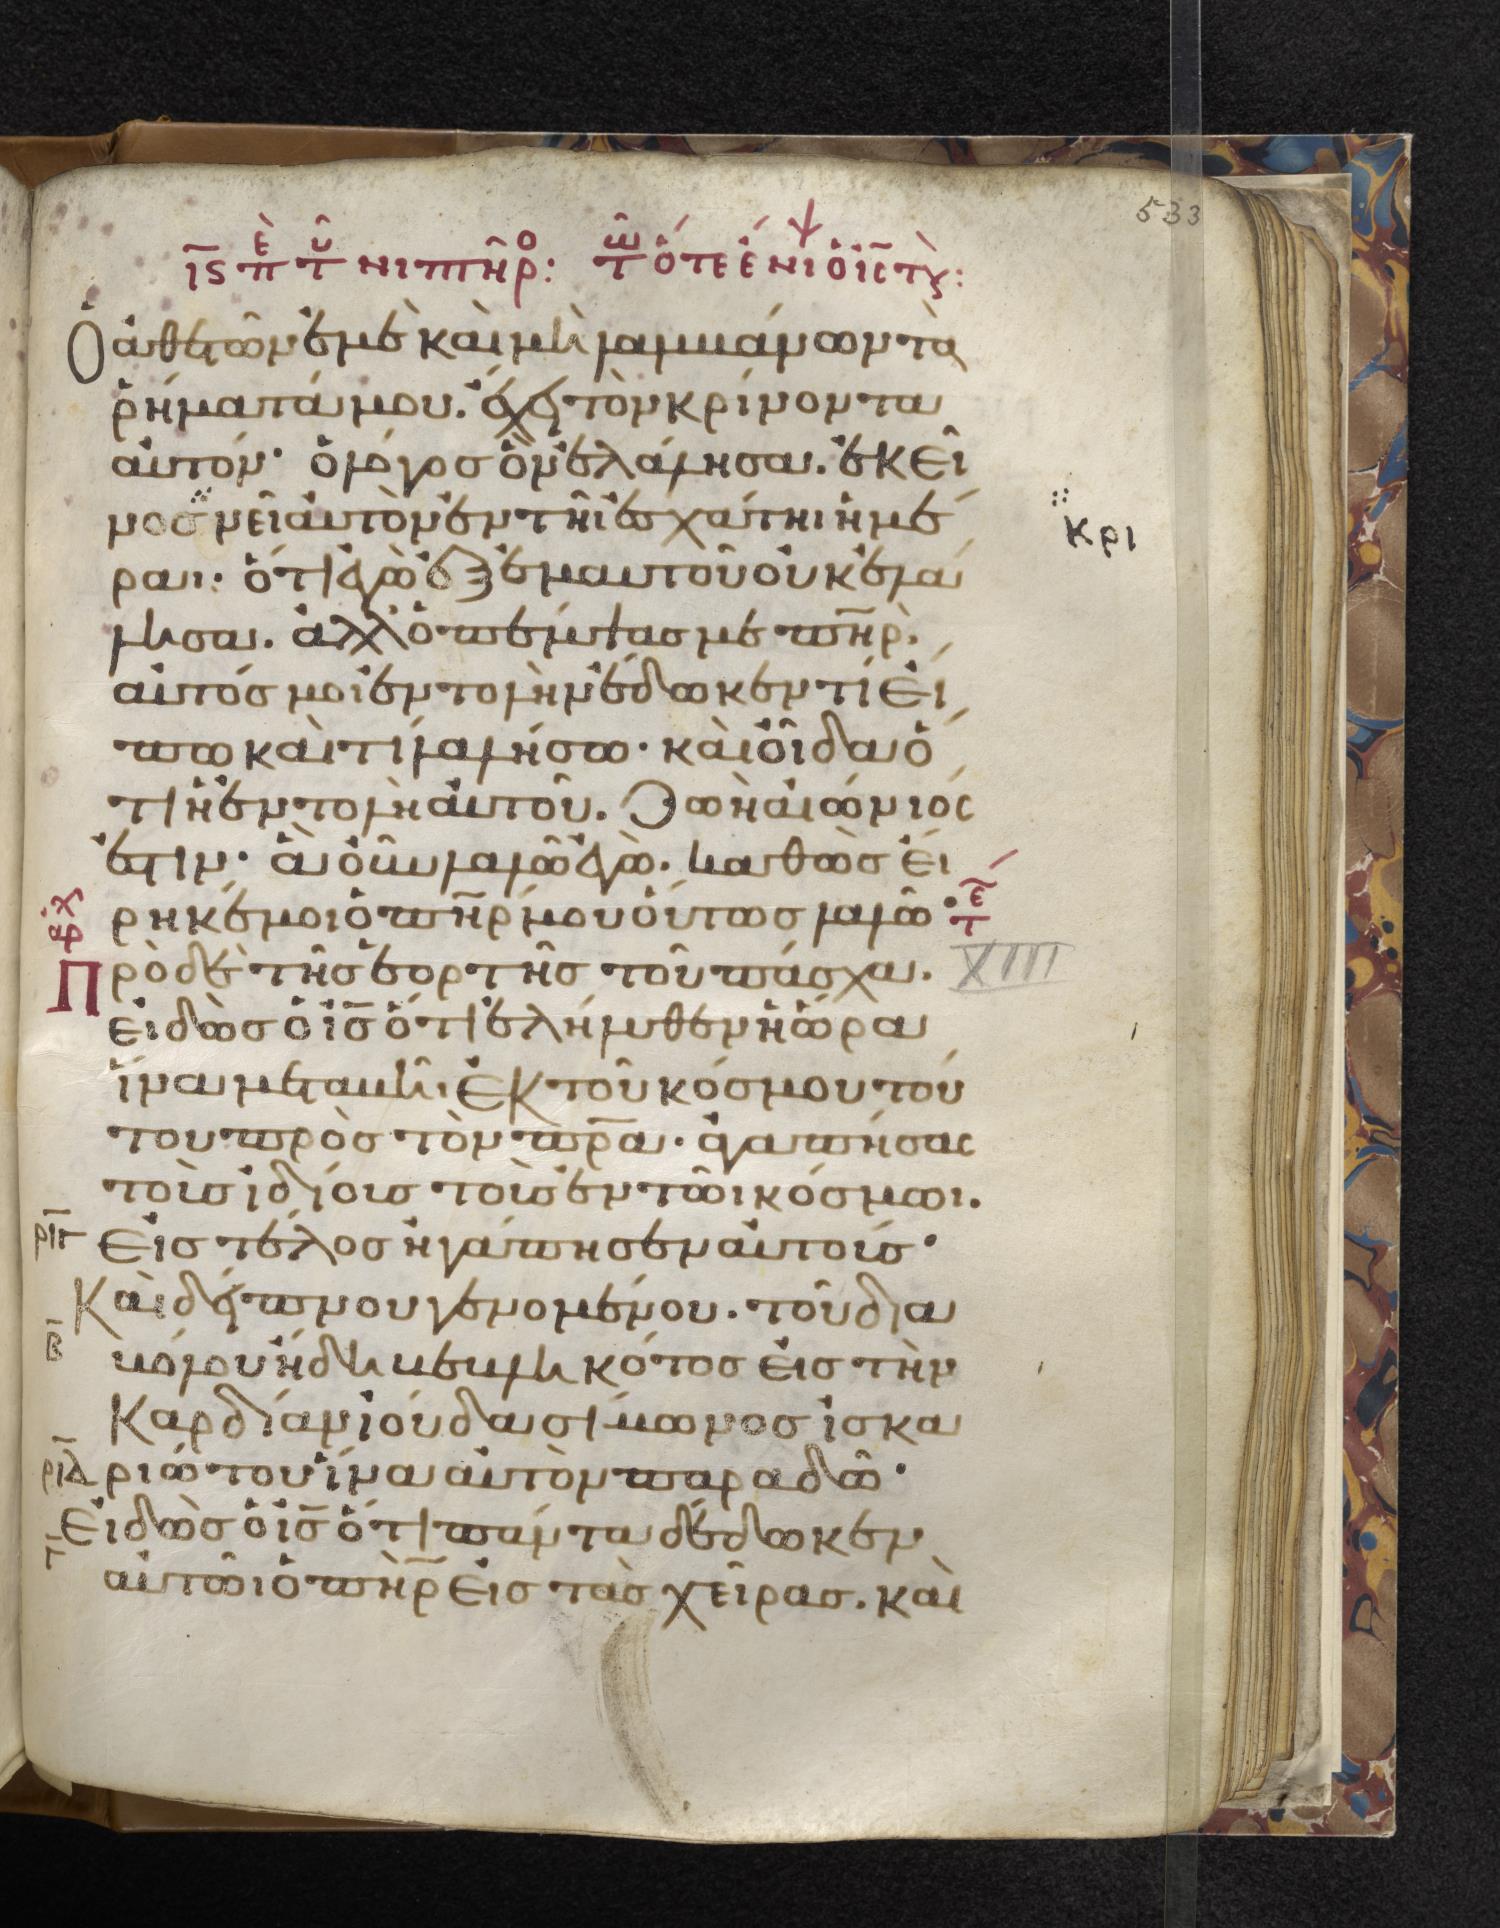 ι̅ϛ π̅ὲ τ̅υ̑ νιπτῆρο: τ̅ῶ ὅτε ἔνιψ ὁ ι̅ς τ̀ς:
533
Ὁ ἀθετῶν ἐμὲ καὶ μὴ λαμβάνων τὰ
ῥήματά μου. ἔχει τὸν κρίνοντα
αὐτόν· ὁ λόγος ὃν ἐλάλησα. ἐκεῖ
νος νεῖ αὐτὸν ἐν τῆι ἐσχάτηι ἡμέ
κρι
ραι: ὅτι ἐγὼ ἐξ ἐμαυτοῦ οὐκ ἐλά
λησα. ἀλλ' ὁ πέμψας με π̅η̅ρ̅.
αὐτός μοι ἐντολὴν ἔδωκεν τί εἴ
πω καὶ τί λαλήσω· καὶ οἶδα ὅ
τι ἡ ἐντολὴ αὐτοῦ. ζωὴ αἰώνιος
ἐστιν· ἃ οὖν λαλῶ ἐγὼ. καθὼς εἴ
ρηκέ μοι ὁ π̅η̅ρ̅ μου οὕτως λαλῶ· τ̅ε̅
ἀρχ
Πρὸ δὲ τῆς ἑορτῆς τοῦ πάσχα. XIII
εἰδὼς ὁ ι̅ς̅ ὅτι ἐλήλυθεν ἡ ὥρα
ἵνα μεταβῆι ἐκ τοῦ κόσμου τού
του πρὸς τὸν π̅ρ̅α̅· ἀγαπήσας
τοὺς ἰδίους τοὺς ἐν τῶι κόσμωι.
ρ̅ι̅γ̅ Εἰς τέλος ἠγάπησεν αὐτούς·
Καὶ δείπνου γενομένου. τοῦ δια
β̅ βόλου ἤδη βεβληκότος εἰς τὴν
Καρδίαν ἰούδα σίμωνος ἰσκα
ρ̅ι̅δ̅ ριώτου ἵνα αὐτὸν παραδῶ·
γ̅ Εἰδὼς ὁ ι̅ς̅ ὅτι πάντα δέδωκεν
αὐτῶι ὁ π̅η̅ρ̅ εἰς τὰς χεῖρας. καὶ